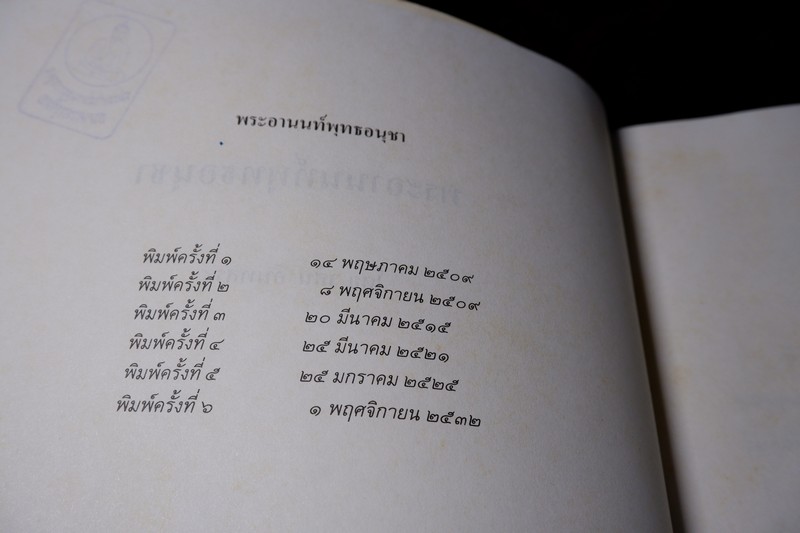 พระอานนท์พุทธอนุชา
พิมพ์ครั้งที่ ๑ ๑๔ พฤษภาคม ๒๕๐๙
พิมพ์ครั้งที่ ๒ ๘ พฤศจิกายน ๒๕๐๙
พิมพ์ครั้งที่ ๓ ๒๐ มีนาคม ๒๕๑๕
พิมพ์ครั้งที่ ๔ ๒๕ มีนาคม ๒๕๒๑
พิมพ์ครั้งที่ ๕ ๒๕ มกราคม ๒๕๒๕
พิมพ์ครั้งที่ ๖ ๑ พฤศจิกายน ๒๕๓๒